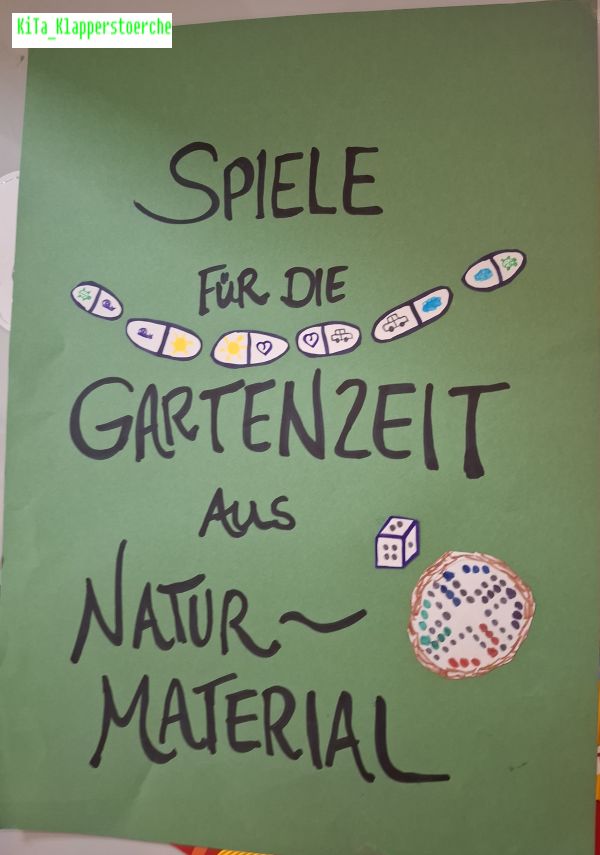 KiTa_Klapperstoerche
SPIELE
FÜR DIE
GARTENZEIT
AUS
NATUR~
MATERIAL